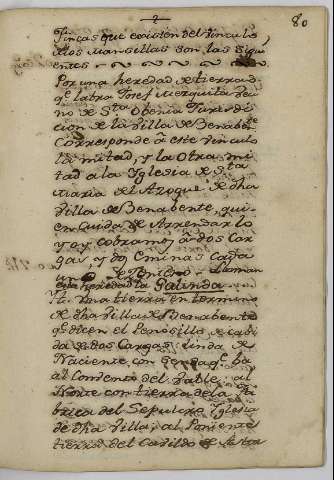 2
80
Fincas que existen del vinculo
los Mansillas son las sigui
entes
Por una heredad de tierras
q.e labra Josef Mezquita veci
no de S.ta Obenia Jurisdi
cion de la villa de Benab.te
Corresponde â este vinculo
la mitad, y la otra mi
tad a la Yglesia de S.ta
Maria del Azogue de dha
Villa de Benabente, qui
en cuida de Arrendarlo
y oy cobramos â dos Car
gas y dos eminas cada
uno de
esta heredad la Galinda
It. una tierra en termino
de dha villa de Benabente
q.e dicen el Penosillo de cabi
da de dos Cargas: linda de
Naciente con Senda q.e ba
al Convento del Valle, al
Norte con tierra de la Fa
brica del Sepulcro Yglesia
de dha villa; al Poniente
tierra del Cavildo de